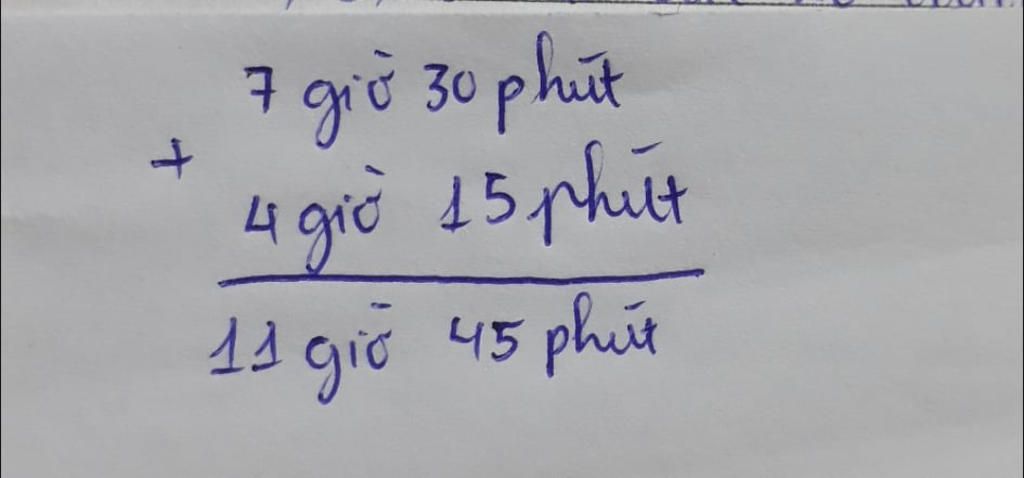 7 giờ 30 phút
+
4 giờ 15 phút
11 giờ 45 phút